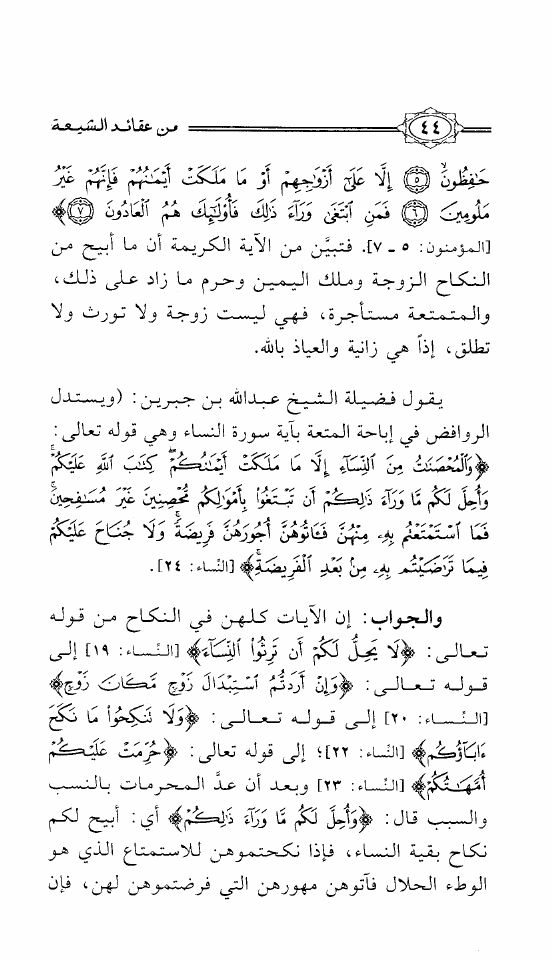 ٤٤ من عقائد الشيعة
حَٰفِظُونَ ٥ إِلَّا عَلَىٰٓ أَزْوَٰجِهِمْ أَوْ مَا مَلَكَتْ أَيْمَٰنُهُمْ فَإِنَّهُمْ غَيْرُ
مَلُومِينَ ٦ فَمَنِ ٱبْتَغَىٰ وَرَآءَ ذَٰلِكَ فَأُو۟لَٰٓئِكَ هُمُ ٱلْعَادُونَ ٧﴾
[المؤمنون: ٥ ـ ٧]. فتبيَّن من الآية الكريمة أن ما أبيح من
النكاح الزوجة وملك اليمين وحرم ما زاد على ذلك،
والمتمتعة مستأجرة، فهي ليست زوجة ولا تورث ولا
تطلق، إذاً هي زانية والعياذ بالله.
يقول فضيلة الشيخ عبدالله بن جبرين: (ويستدل
الروافض في إباحة المتعة بآية سورة النساء وهي قوله تعالى:
﴿وَٱلْمُحْصَنَٰتُ مِنَ ٱلنِّسَآءِ إِلَّا مَا مَلَكَتْ أَيْمَٰنُكُمْۖ كِتَٰبَ ٱللَّهِ عَلَيْكُمْۚ
وَأُحِلَّ لَكُم مَّا وَرَآءَ ذَٰلِكُمْ أَن تَبْتَغُوا۟ بِأَمْوَٰلِكُم مُّحْصِنِينَ غَيْرَ مُسَٰفِحِينَۚ
فَمَا ٱسْتَمْتَعْتُم بِهِۦ مِنْهُنَّ فَـَٔاتُوهُنَّ أُجُورَهُنَّ فَرِيضَةًۚ وَلَا جُنَاحَ عَلَيْكُمْ
فِيمَا تَرَٰضَيْتُم بِهِۦ مِنۢ بَعْدِ ٱلْفَرِيضَةِۚ﴾ [النِّساء: ٢٤].
والجواب: إن الآيات كلهن في النكاح من قوله
تعالى: ﴿لَا يَحِلُّ لَكُمْ أَن تَرِثُوا۟ ٱلنِّسَآءَ﴾ [النِّساء: ١٩] إلى
قوله تعالى: ﴿وَإِنْ أَرَدتُّمُ ٱسْتِبْدَالَ زَوْجٍ مَّكَانَ زَوْجٍ﴾
[النِّساء: ٢٠] إلى قوله تعالى: ﴿وَلَا تَنكِحُوا۟ مَا نَكَحَ
ءَابَآؤُكُم﴾ [النِّساء: ٢٢]؛ إلى قوله تعالى: ﴿حُرِّمَتْ عَلَيْكُمْ
أُمَّهَٰتُكُمْ﴾ [النِّساء: ٢٣] وبعد أن عدَّ المحرمات بالنسب
والسبب قال: ﴿وَأُحِلَّ لَكُم مَّا وَرَآءَ ذَٰلِكُمْ﴾ أي: أبيح لكم
نكاح بقية النساء، فإذا نكحتموهن للاستمتاع الذي هو
الوطء الحلال فآتوهن مهورهن التي فرضتموهن لهن، فإن